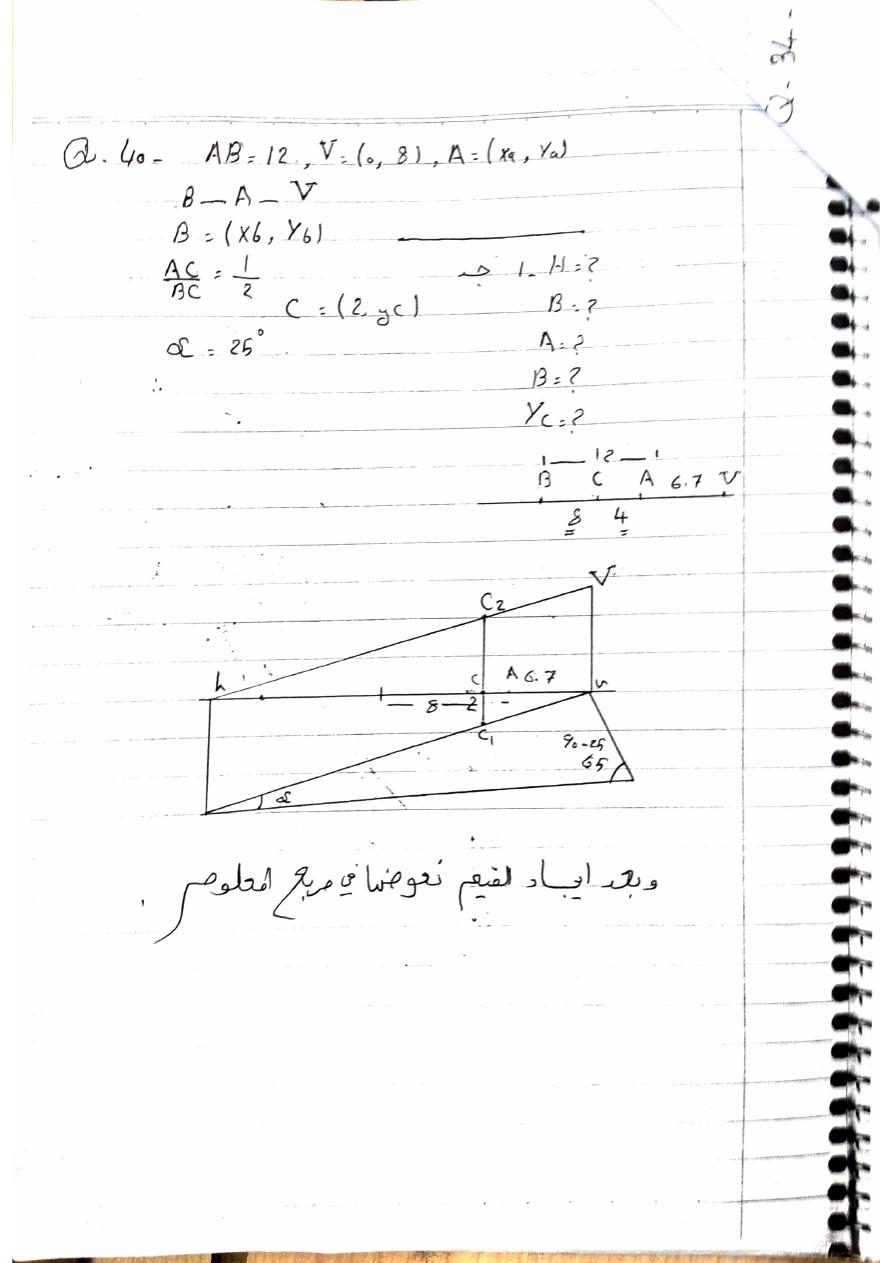 Q-34-
Q. 40- AB=12, V=(0, 8), A=(xa, Ya)
B — A — V
B = (Xb, Yb)
AC/BC = 1/2
جد 1. H=?
C = (2, yc) B=?
α = 25° A=?
∴ B=?
Yc=?
12
B C A 6.7 V
8 4
V
C2
h C A 6.7 v
8 2
C1
90-25
65
α
وبعد ايجاد القيم نعوضها في مربع المعلوم